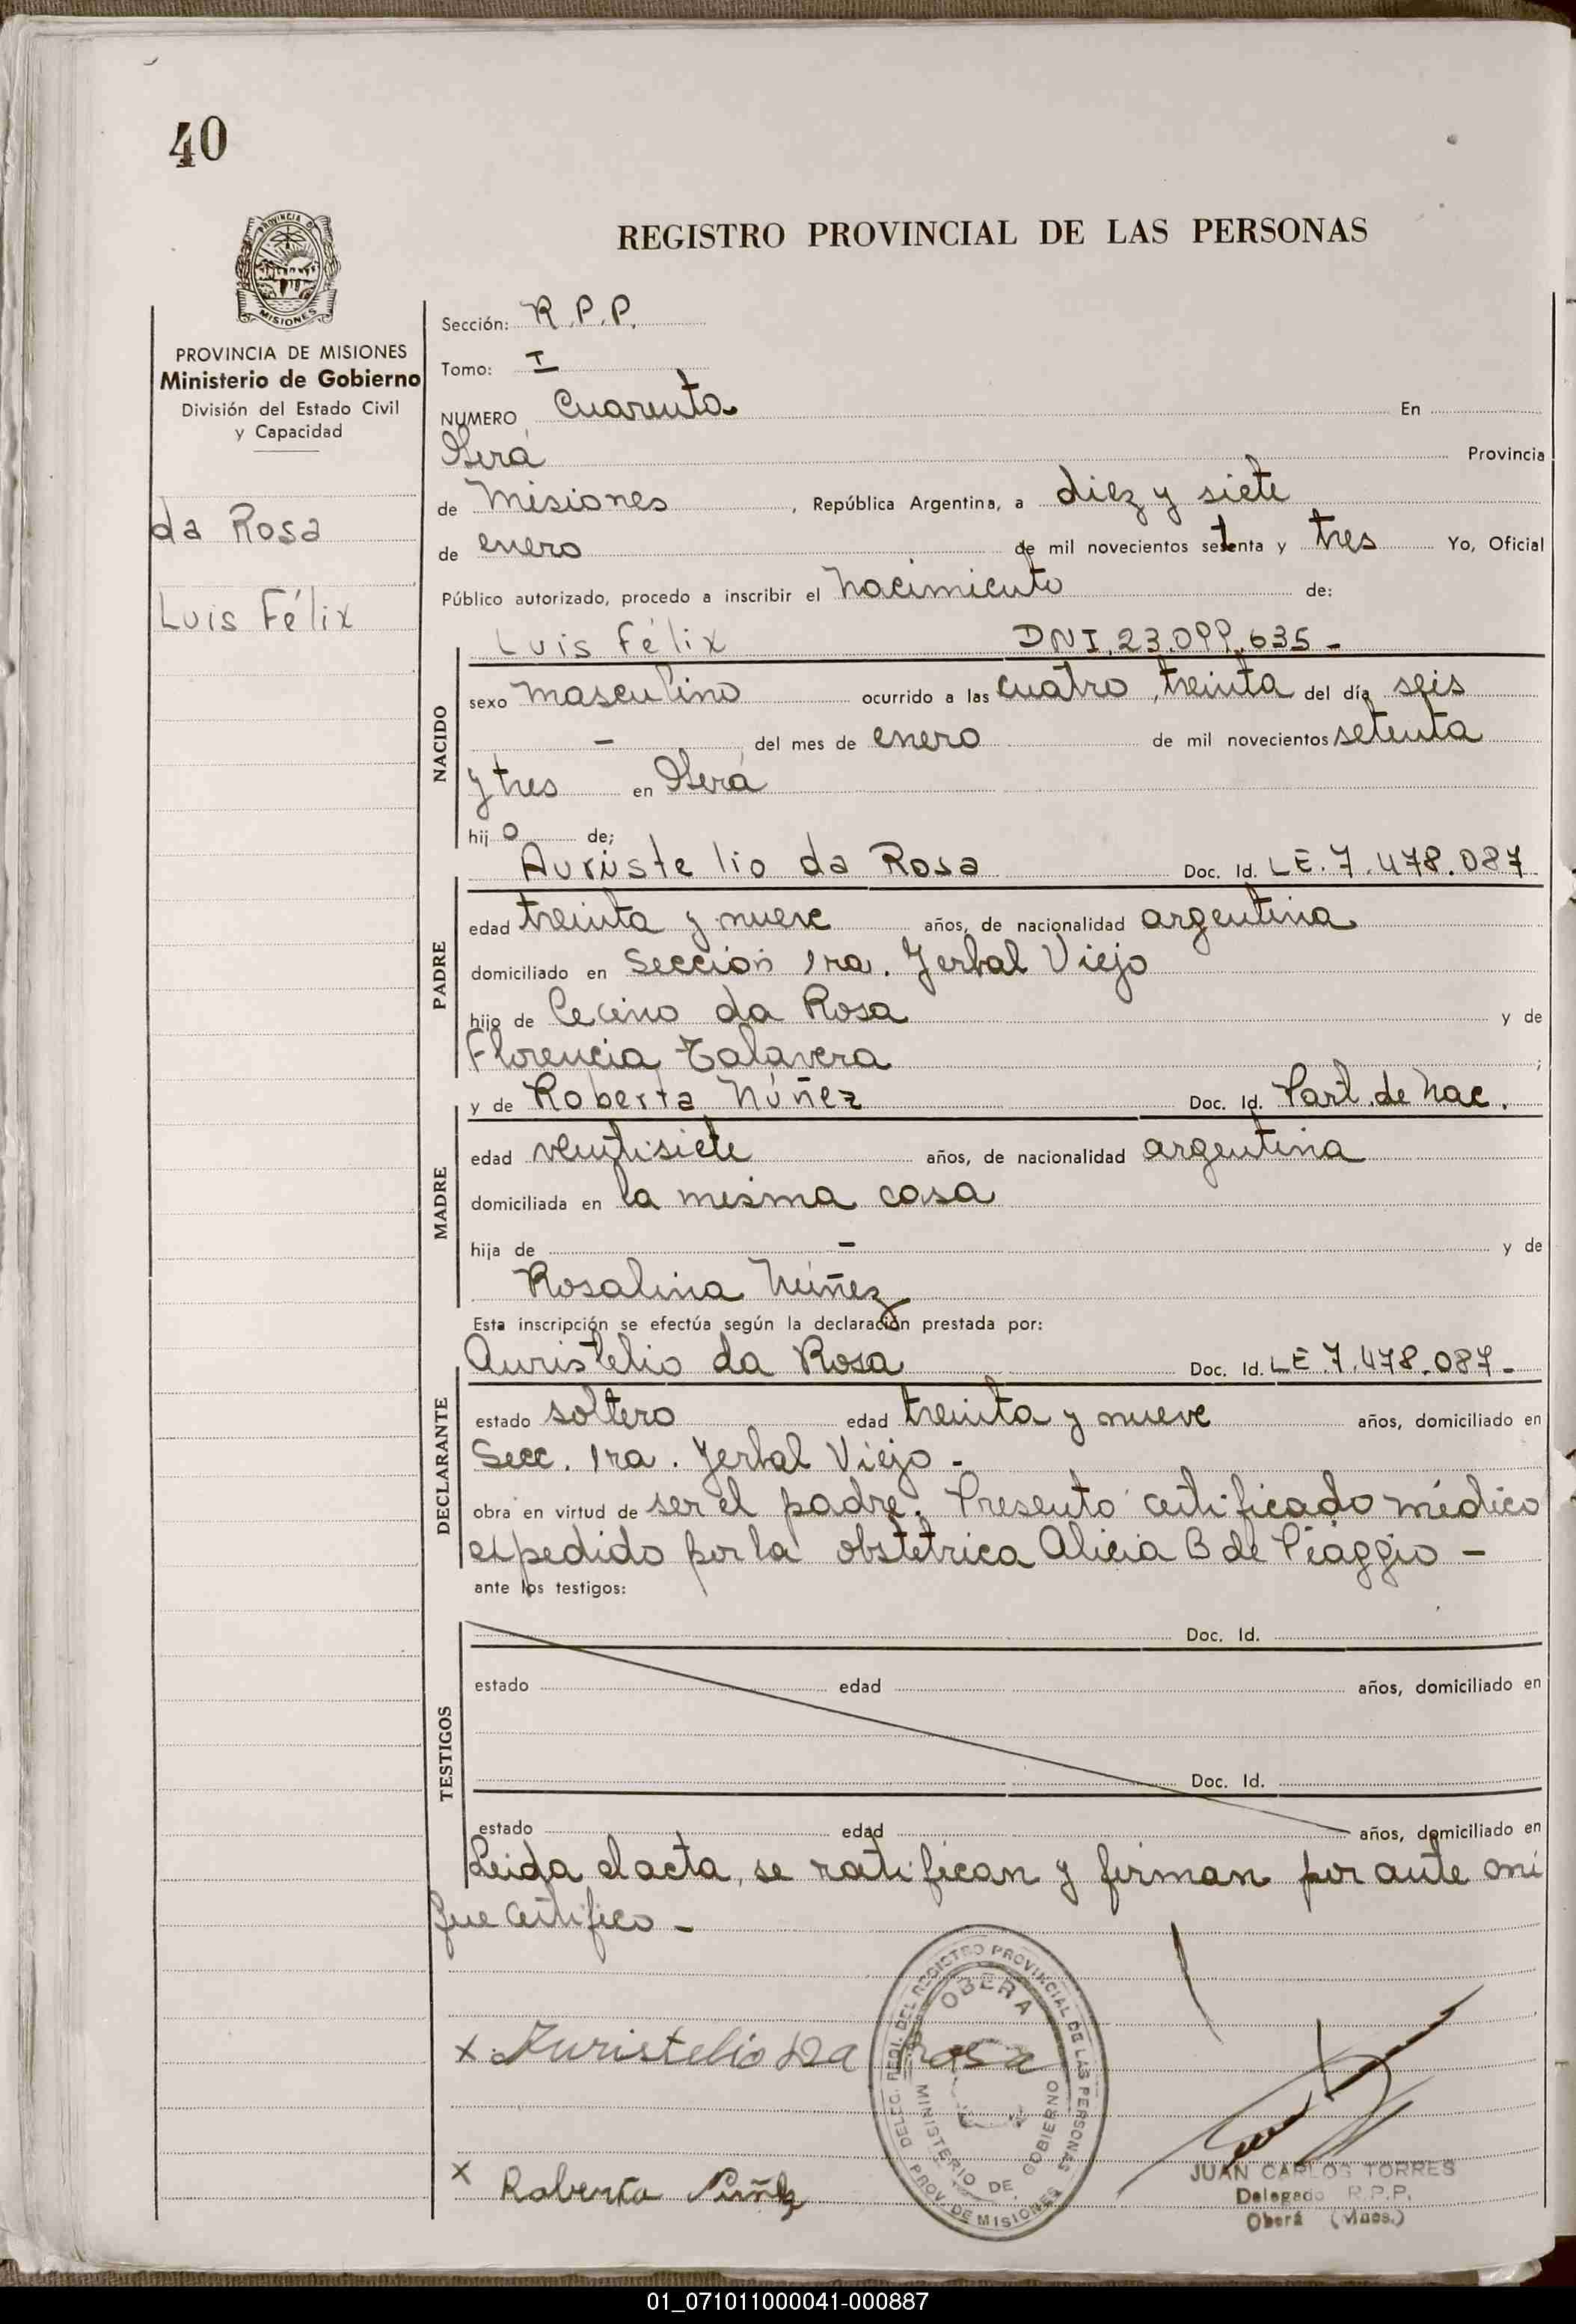 40
PROVINCIA DE
MISIONES
REGISTRO PROVINCIAL DE LAS PERSONAS
PROVINCIA DE MISIONES
Ministerio de Gobierno
División del Estado Civil
y Capacidad
da Rosa
Luis Félix
Sección: R.P.P.
Tomo: I
NUMERO Cuarenta En
Oberá Provincia
de Misiones, República Argentina, a diez y siete
de enero de mil novecientos setenta y tres Yo, Oficial
Público autorizado, procedo a inscribir el nacimiento de:
NACIDO
Luis Félix DNI. 23.099.635 -
sexo masculino ocurrido a las cuatro, treinta del día seis
- del mes de enero de mil novecientos setenta
y tres en Oberá
hijo de;
PADRE
Auristelio da Rosa Doc. Id. LE. 7.478.087
edad treinta y nueve años, de nacionalidad argentina
domiciliado en Sección 1ra. Yerbal Viejo
hijo de Cecino da Rosa y de
Florencia Talavera ;
MADRE
y de Roberta Núñez Doc. Id. Part. de Nac.
edad veintisiete años, de nacionalidad argentina
domiciliada en la misma casa
hija de - y de
Rosalina Núñez
Esta inscripción se efectúa según la declaración prestada por:
DECLARANTE
Auristelio da Rosa Doc. Id. LE 7.478.087-
estado soltero edad treinta y nueve años, domiciliado en
Secc. 1ra. Yerbal Viejo -
obra en virtud de ser el padre. Presentó certificado médico
expedido por la obstetrica Alicia B de Piaggio -
ante los testigos:
TESTIGOS
Doc. Id.
estado edad años, domiciliado en
Doc. Id.
estado edad años, domiciliado en
Leida el acta, se ratifican y firman por ante mí
que certifico -
DELEG. REGI. DEL REGISTRO PROVINCIAL DE LAS PERSONAS
OBERA
MINISTERIO DE GOBIERNO
PROV. DE MISIONES
x Auristelio Da Rosa
x Roberta Núñez
JUAN CARLOS TORRES
Delegado R.P.P.
Oberá (Mnes.)
01_071011000041-000887